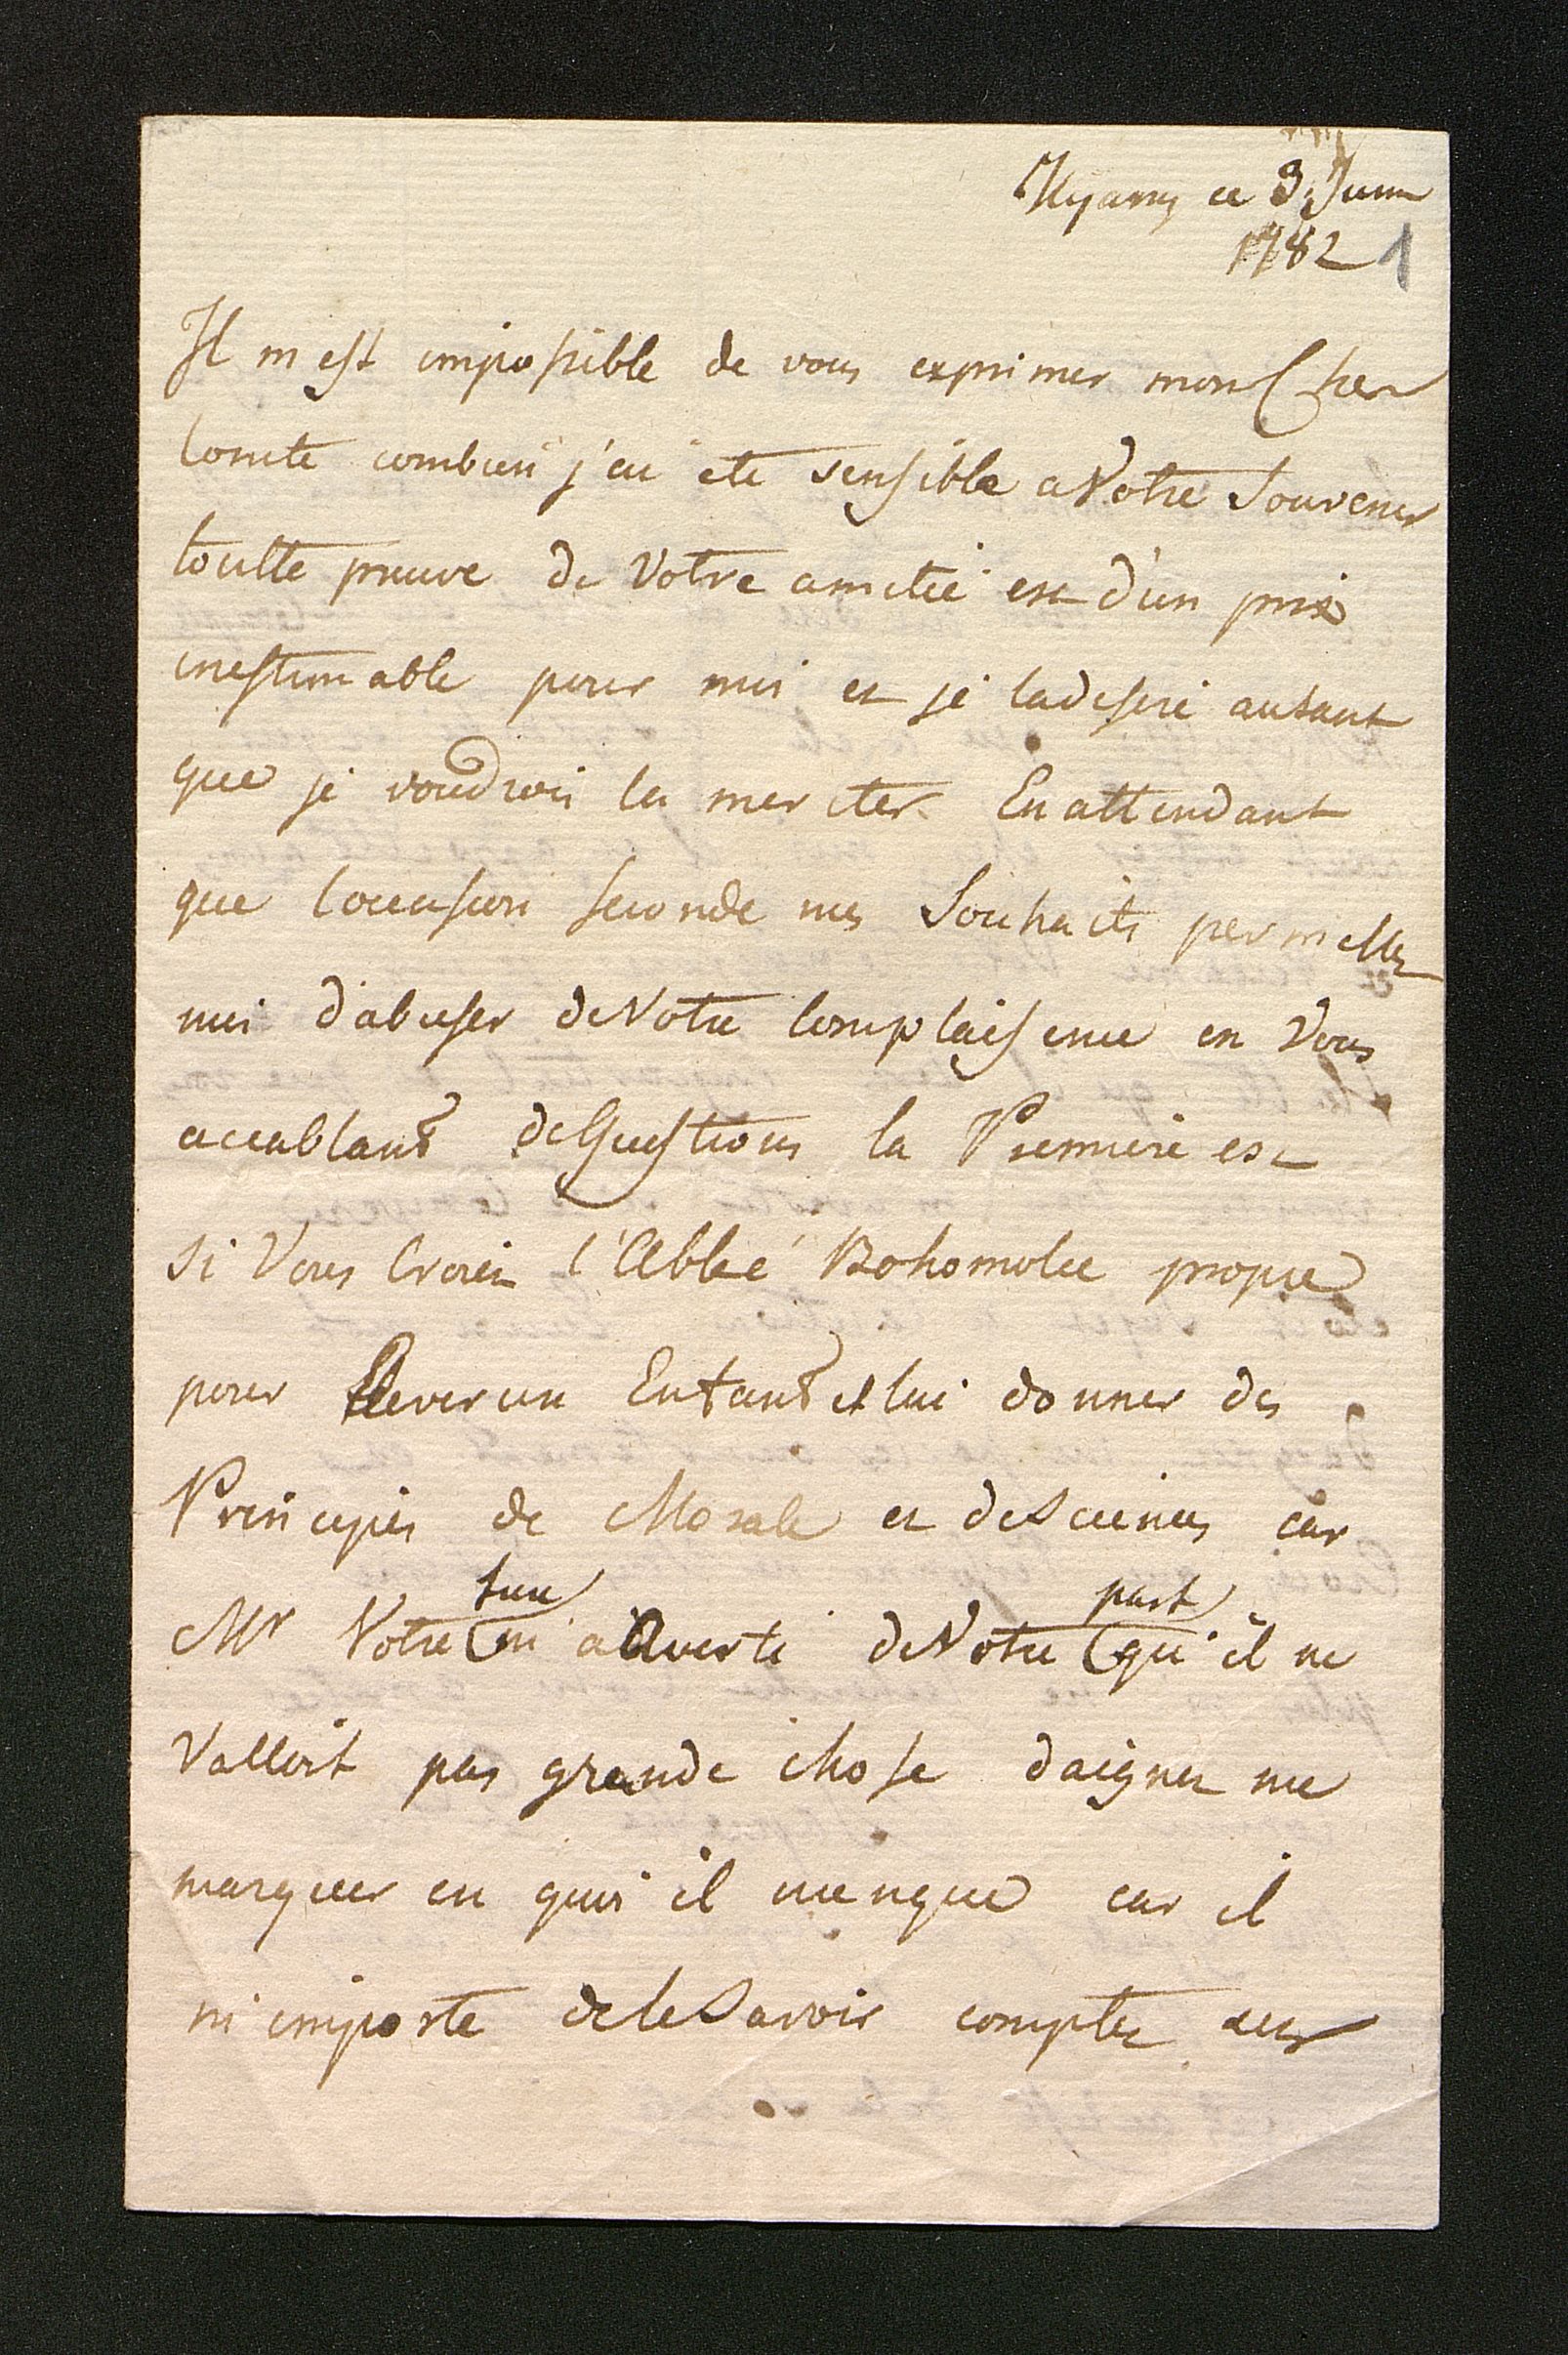 ce 3 Juin
1782 1
Il m'est impossible de vous exprimer mon Cher
Comte combien j'ai ete sensible a Votre Souvenir
toutte preuve de Votre amitié est d'un prix
inestimable pour moi et je la desire autant
que je voudrois la meriter. En attendant
que l'occasion seconde mes Souhaits permettez
moi d'abuser de Votre Complaisence en Vous
accablant de Questions la Premiere est
si Vous Croiez l'Abbé Bohomolec propre
pour Elever un Enfant et lui donner des
Principes de Morale et de Sciences car
sœur part
Mr Votre m'a Averti de Votre qu'il ne
Valloit pas grande chose daignez me
marquer en quoi il menque car il
m'importe de le Savoir comptez sur